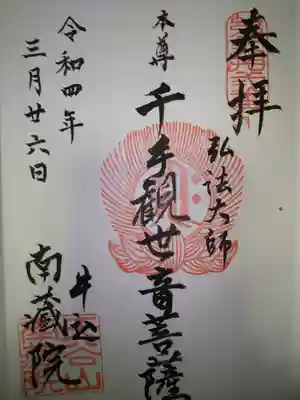 奉拝
弘法大師
本尊 千手観世音菩薩
牛込
南藏院
令和四年
三月廿六日